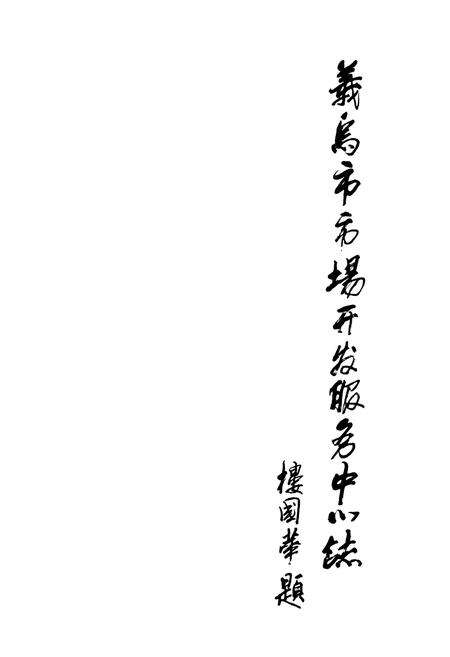 義烏市市場开发服务中心誌
樓國華題